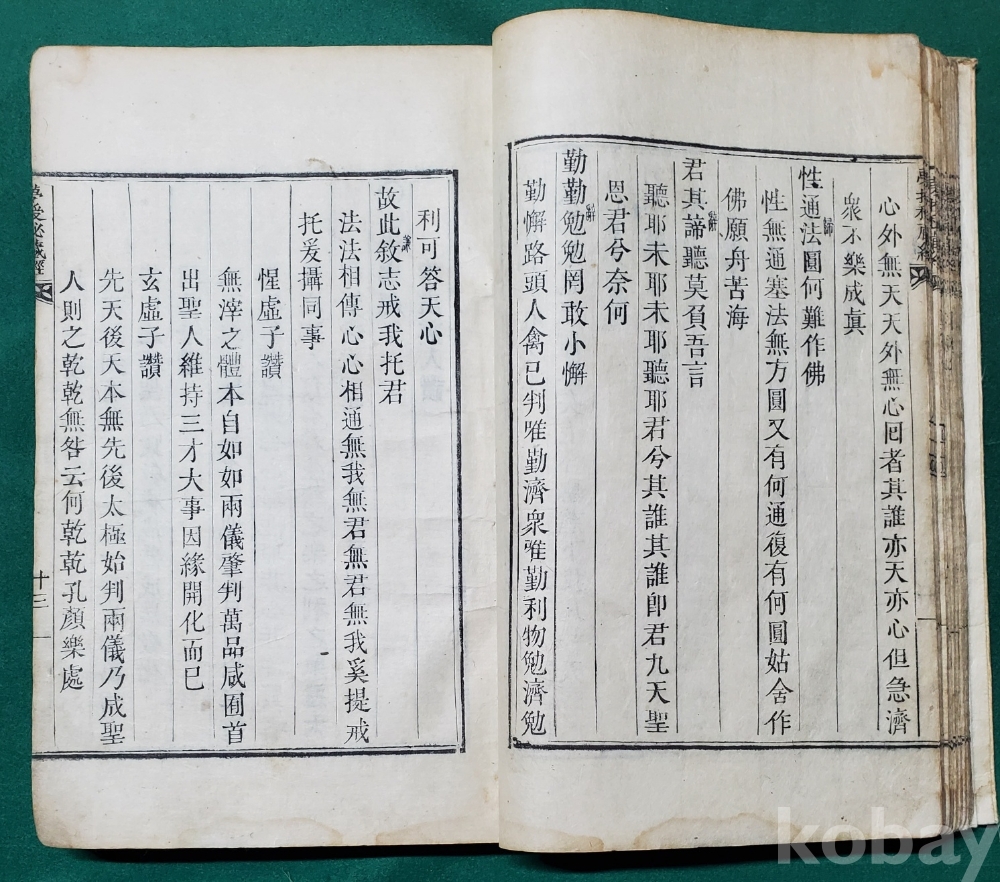 心外無天天外無心囘者其誰亦天亦心但急濟
衆不樂成眞
性通法圓何難作佛
性無通塞法無方圓又有何通復有何圓姑舍作
佛願舟苦海
君其諦聽莫負吾言
聽耶未耶未耶聽耶君兮其誰其誰卽君九天聖
恩君兮奈何
勤勤勉勉罔敢小懈
勤懈路頭人禽已判唯勤濟衆唯勤利物勉濟勉
利可答天心
故此敘志戒我托君
法法相傳心心相通無我無君無君無我奚提戒
托爰攝同事
惺虛子讚
無滓之體本自如如兩儀肇判萬品咸囿首
出聖人維持三才大事因緣開化而已
玄虛子讚
先天後天本無先後太極始判兩儀乃成聖
人則之乾乾無咎云何乾乾孔顏樂處
十三
kobay